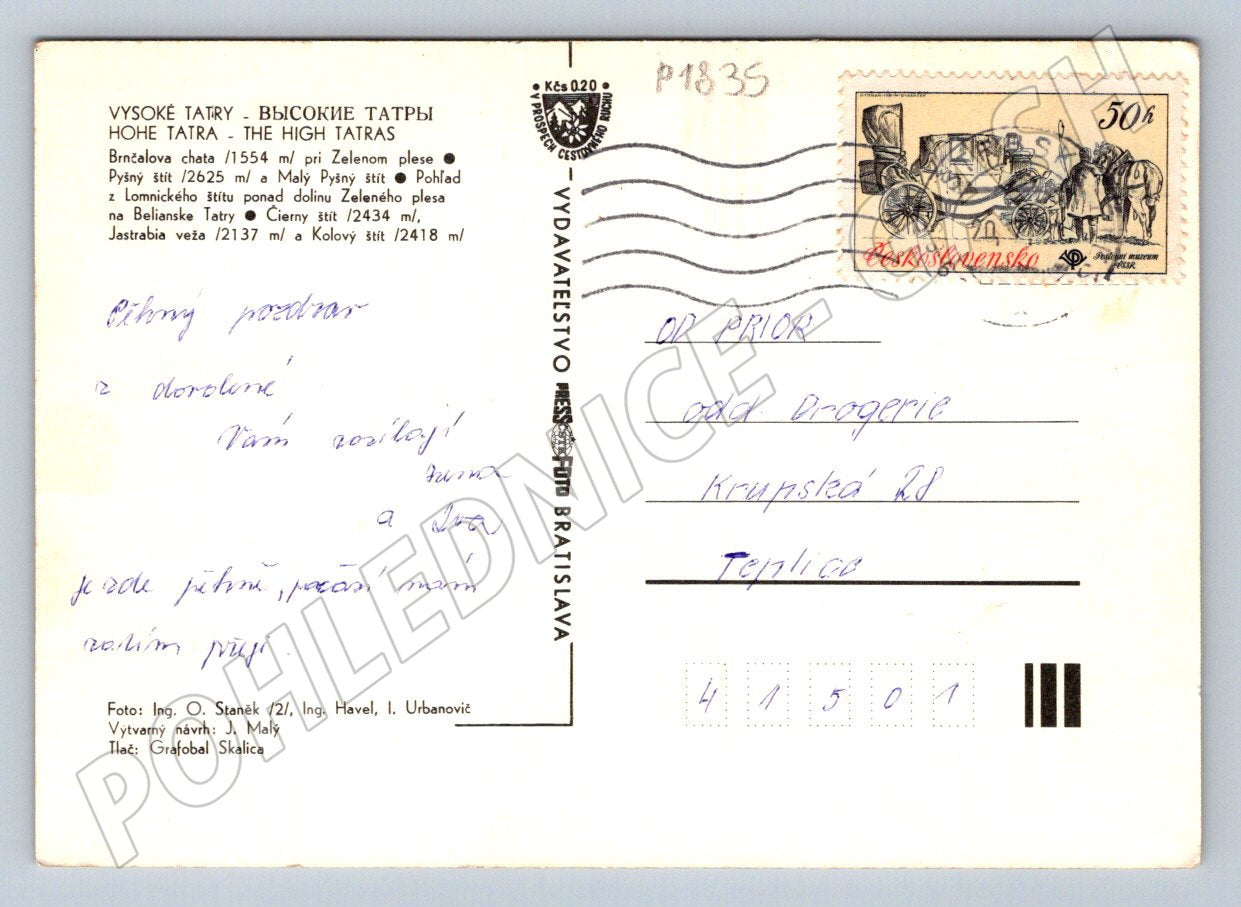 P1835
VYSOKÉ TATRY - ВЫСОКИЕ ТАТРЫ
HOHE TATRA - THE HIGH TATRAS
Brnčalova chata /1554 m/ pri Zelenom plese ●
Pyšný štít /2625 m/ a Malý Pyšný štít ● Pohľad
z Lomnického štítu ponad dolinu Zeleného plesa
na Belianske Tatry ● Čierny štít /2434 m/,
Jastrabia veža /2137 m/ a Kolový štít /2418 m/
Kčs 0.20
V PROSPECH CESTOVNÉHO RUCHU
50h
Československo
Poštovní muzeum
ČSSR
Pěkný pozdrav
z dovolené
Vám zasílají
a Iva
je zde pěkně, počasí nám
zatím přeje.
VYDAVATEĽSTVO PRESSFOTO BRATISLAVA
OD PRIOR
odd. Drogerie
Krupská 28
Teplice
41501
Foto: Ing. O. Staněk /2/, Ing. Havel, I. Urbanovič
Výtvarný návrh: J. Malý
Tlač: Grafobal Skalica